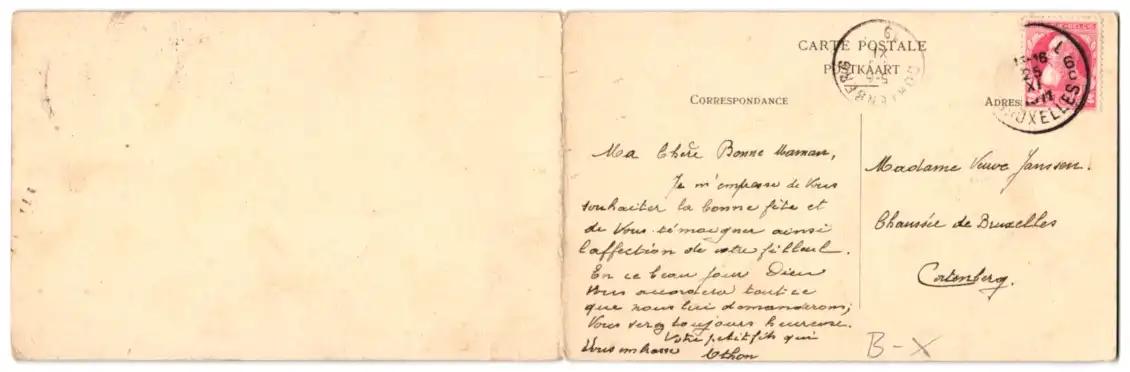 CARTE POSTALE
POSTKAART
CORRESPONDANCE
Ma Chère Bonne Maman,
Je m'empresse de Vous
souhaiter la bonne fête et
de Vous témoigner ainsi
l'affection de votre filleul.
En ce beau jour Dieu
Vous accordera tout ce
que nous lui demanderons;
Vous serez toujours heureuse.
Votre petit fils qui
Vous embrasse Othon
ADRES
Madame Veuve Janssen.
Chaussée de Bruxelles
Cortenberg.
B-X
BRUXELLES
XI
1911